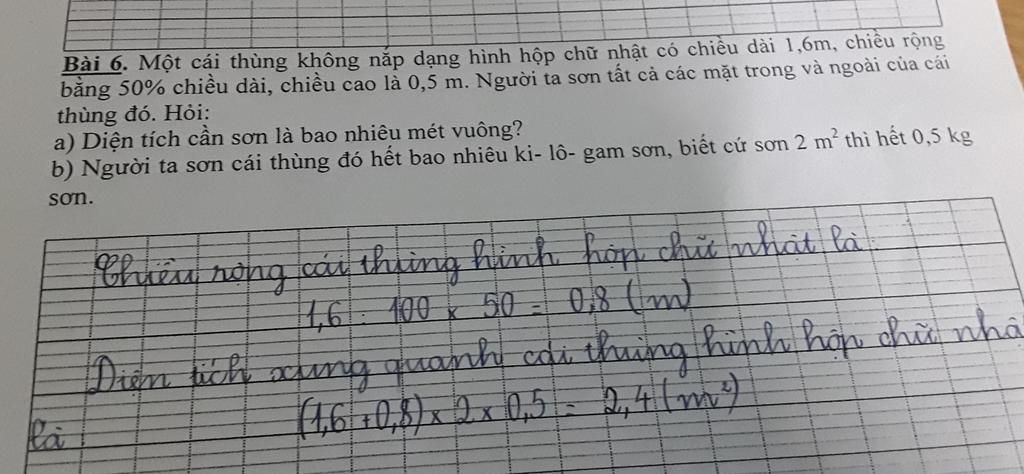 Bài 6. Một cái thùng không nắp dạng hình hộp chữ nhật có chiều dài 1,6m, chiều rộng
bằng 50% chiều dài, chiều cao là 0,5 m. Người ta sơn tất cả các mặt trong và ngoài của cái
thùng đó. Hỏi:
a) Diện tích cần sơn là bao nhiêu mét vuông?
b) Người ta sơn cái thùng đó hết bao nhiêu ki- lô- gam sơn, biết cứ sơn 2 m² thì hết 0,5 kg
sơn.
Chiều rộng cái thùng hình hộp chữ nhật là:
1,6 : 100 x 50 = 0,8 (m)
Diện tích xung quanh cái thùng hình hộp chữ nhâ
là :
(1,6 + 0,8) x 2 x 0,5 = 2,4 (m²)